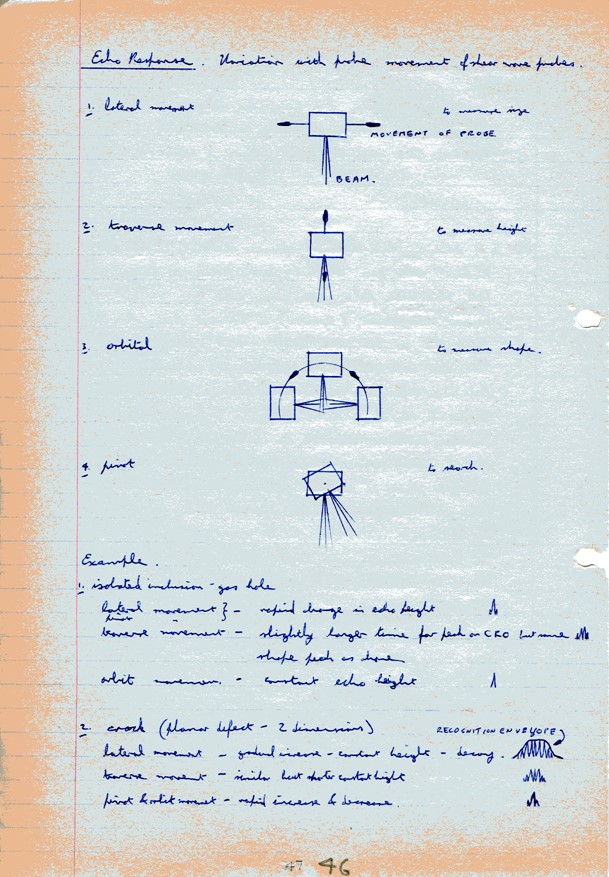 Echo Response. Variation with probe movement of shear wave probes.
1. lateral movement to measure size
MOVEMENT OF PROBE
BEAM.
2. traverse movement to measure height
3. orbital to measure shape.
4. pivot to search.
Example.
1. isolated inclusion - gas hole
lateral movement } - rapid change in echo height
pivot "
traverse movement - slightly longer time for peak on CRO but same
shape peak as above
orbit movement. - constant echo height
2. crack (planar defect - 2 dimensions) RECOGNITION ENVELOPE
lateral movement - gradual increase - constant height - decay.
traverse movement - similar but shorter constant height
pivot & orbit movement - rapid increase & decrease.
47 46